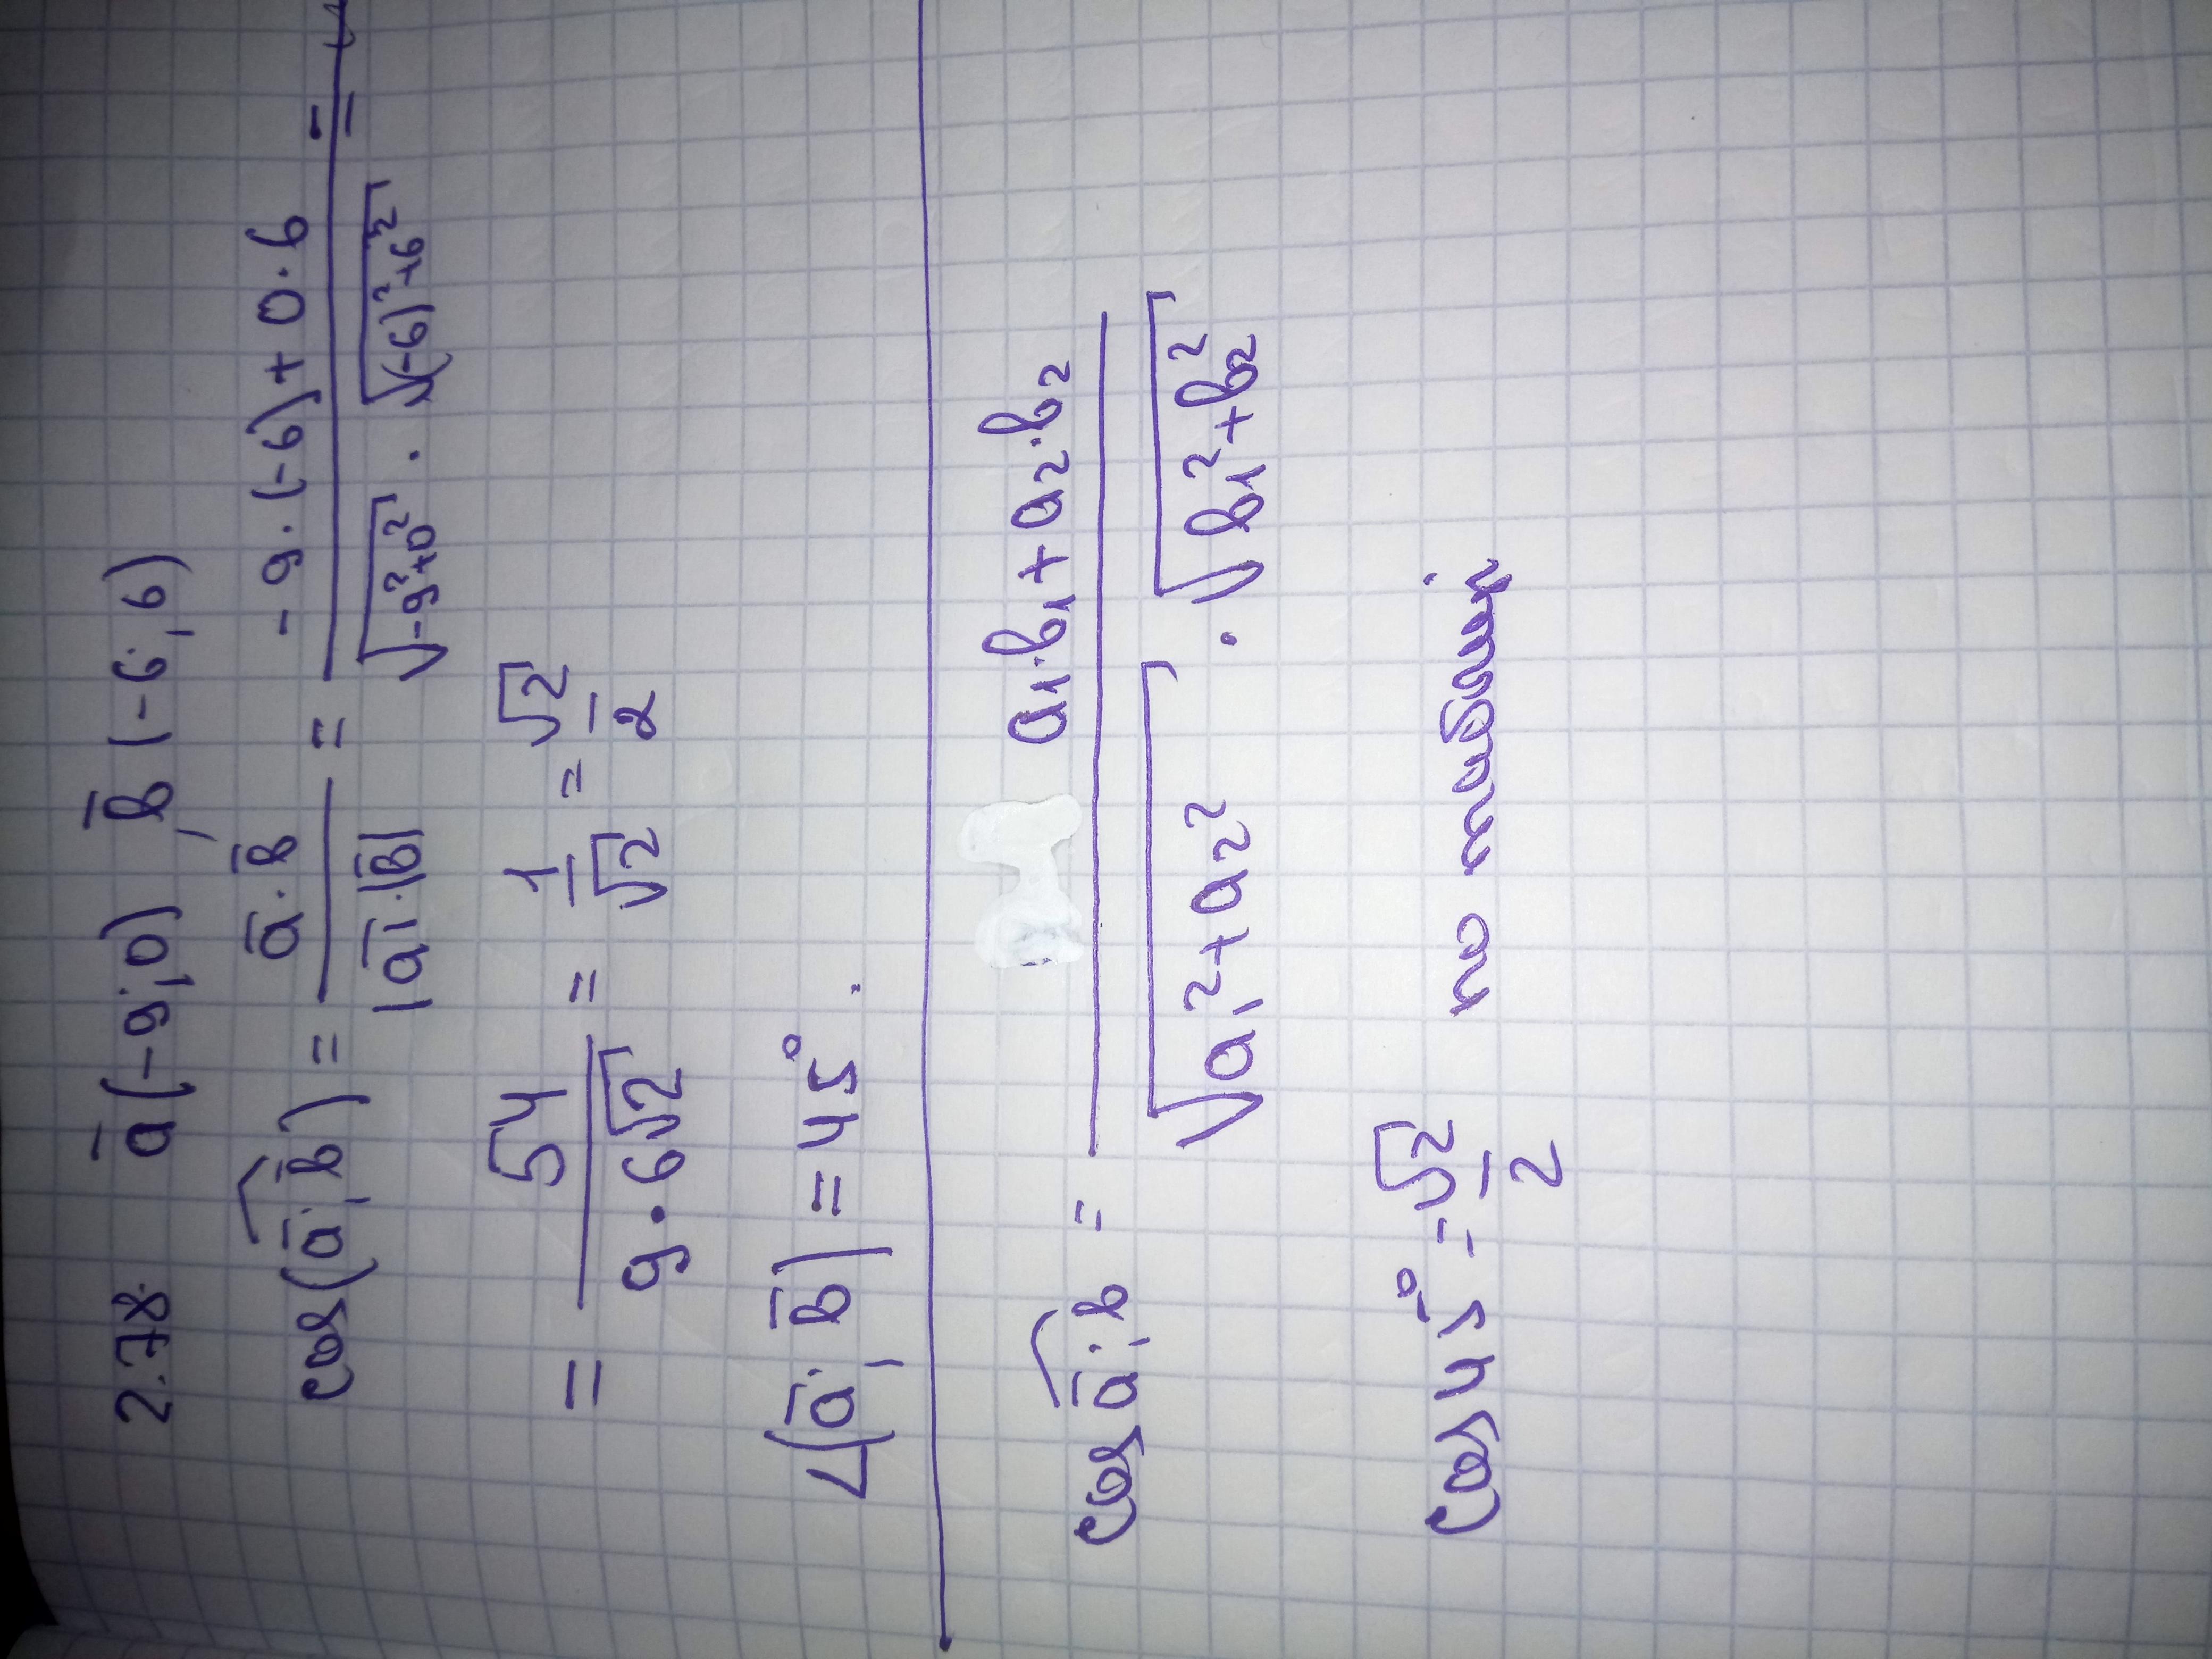 2.78. a̅(-9;0), b̅(-6;6)
cos(a̅;b̅) = a̅·b̅ / |a̅|·|b̅| = -9·(-6)+0·6 / √-9²+0² · √(-6)²+6² =
= 54 / 9·6√2 = 1/√2 = √2/2
∠(a̅;b̅) = 45°.
cos a̅;b = a₁·b₁+a₂·b₂ / √a₁²+a₂² · √b₁²+b₂²
cos 45° = √2/2 по таблиці